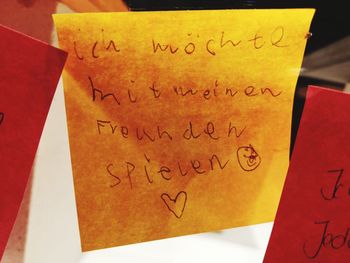 ich möchte
mit meinen
Freunden
spielen